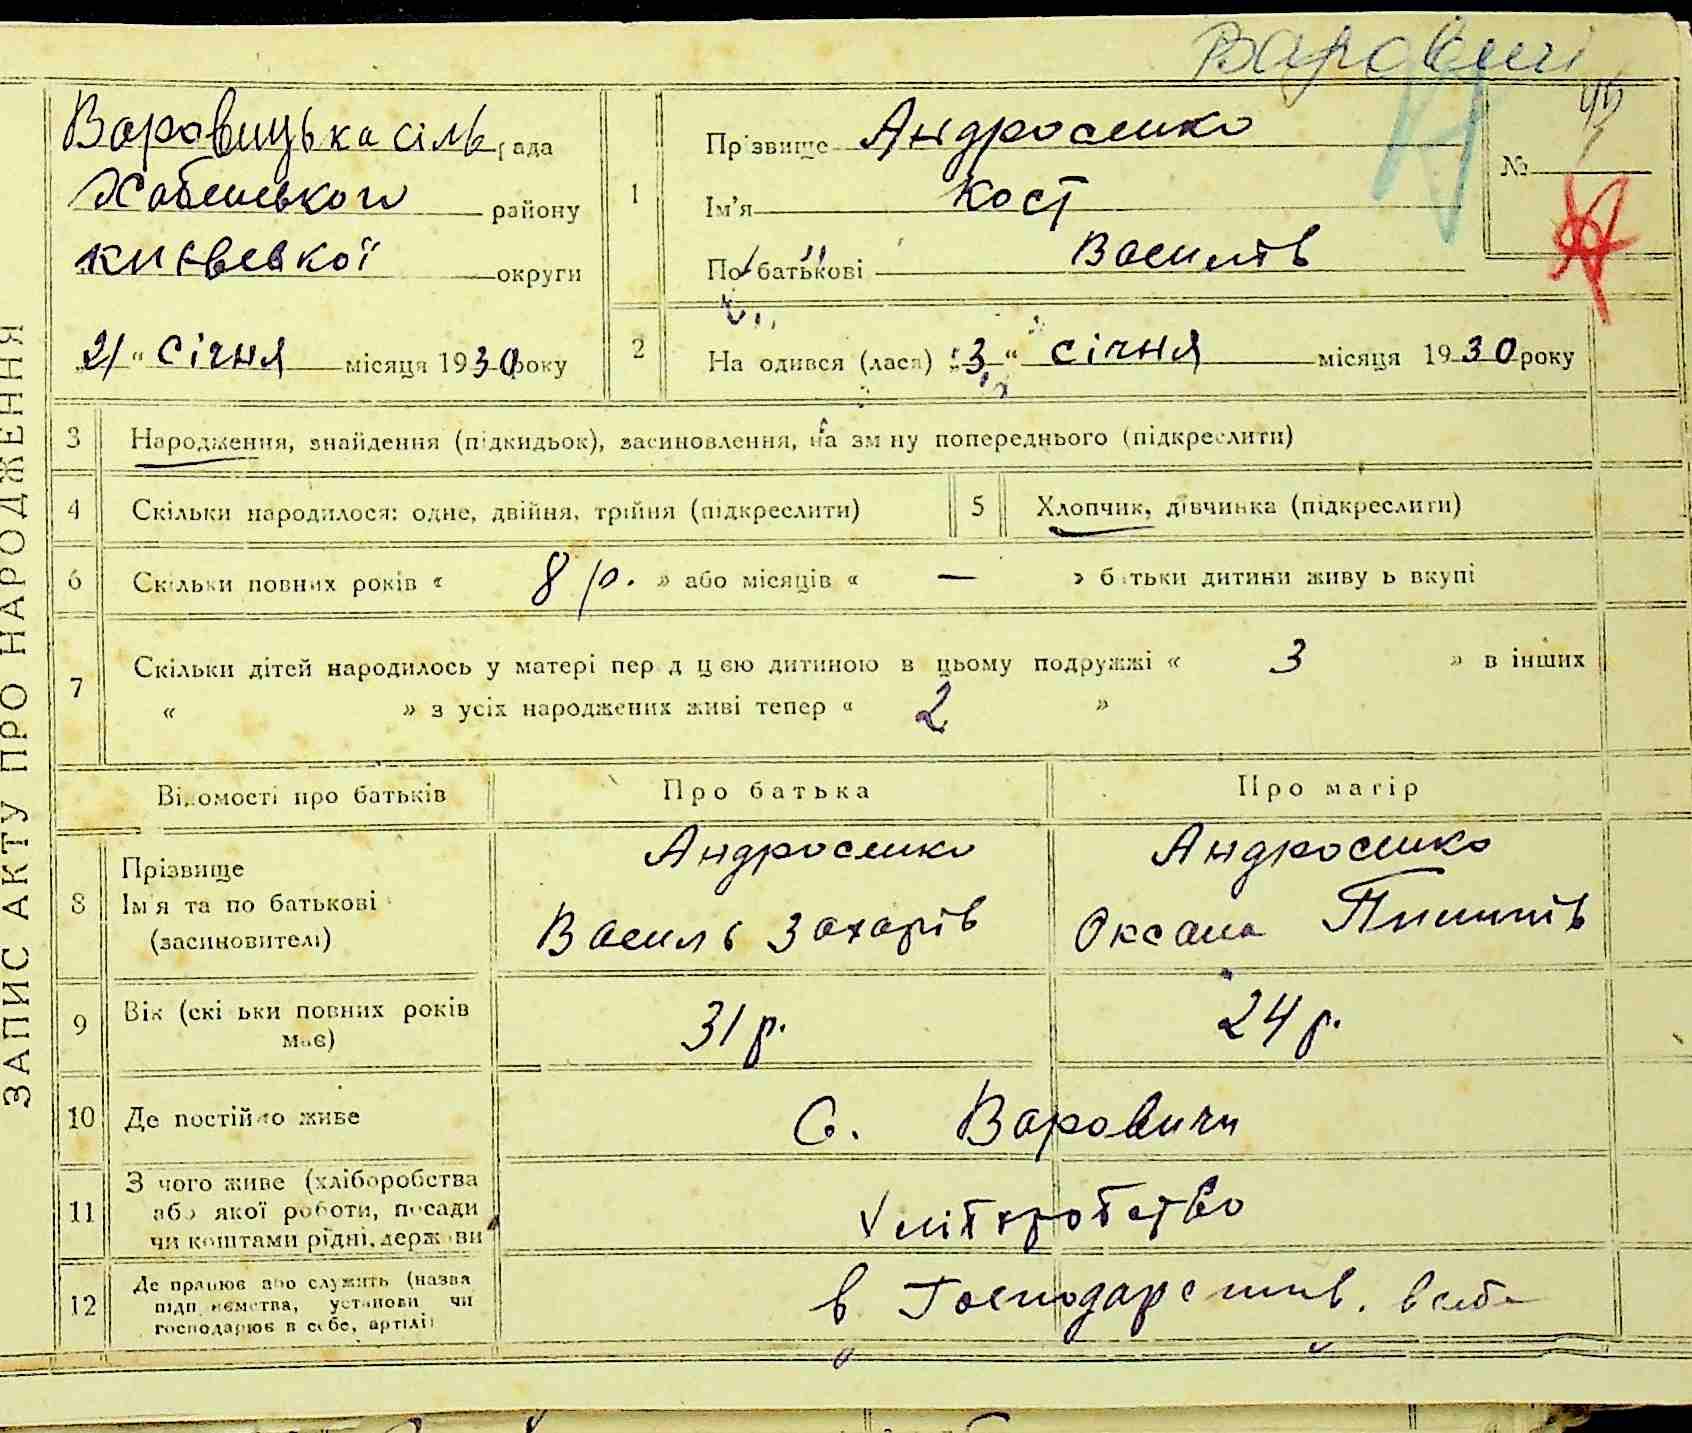 Варовичі
ЗАПИС АКТУ ПРО НАРОДЖЕННЯ
Варовицька сіль рада
Хабенського району
Київської округи
„21“ січня місяця 1930 року
1
Прізвище Андросенко
Ім'я Кост
По батькові Василів
№
2
На одився (лася) „3“ січня місяця 1930 року
3 Народження, знайдення (підкидьок), засиновлення, на зм ну попереднього (підкреслити)
4 Скільки народилося: одне, двійня, трійня (підкреслити) 5 Хлопчик, дівчинка (підкреслити)
6 Скільки повних років « 8 р. » або місяців « — » б тьки дитини живу ь вкупі
7 Скільки дітей народилось у матері пер д ц єю дитиною в цьому подружжі « 3 » в інших
« » з усіх народжених живі тепер « 2 »
Відомості про батьків Про батька Про матір
8 Прізвище Ім'я та по батькові (засиновителі)
Андросенко Андросенко
Василь Захарів Оксана
9 Вік (скі ьки повних років має) 31 р. 24 р.
10 Де постійно живе С. Варовичи
11 З чого живе (хліборобства
або якої роботи, посади
чи коштами рідні, держави
12 Де працює або служить (назва
підп иємства, установи чи
господарює в себе, артілі)
в